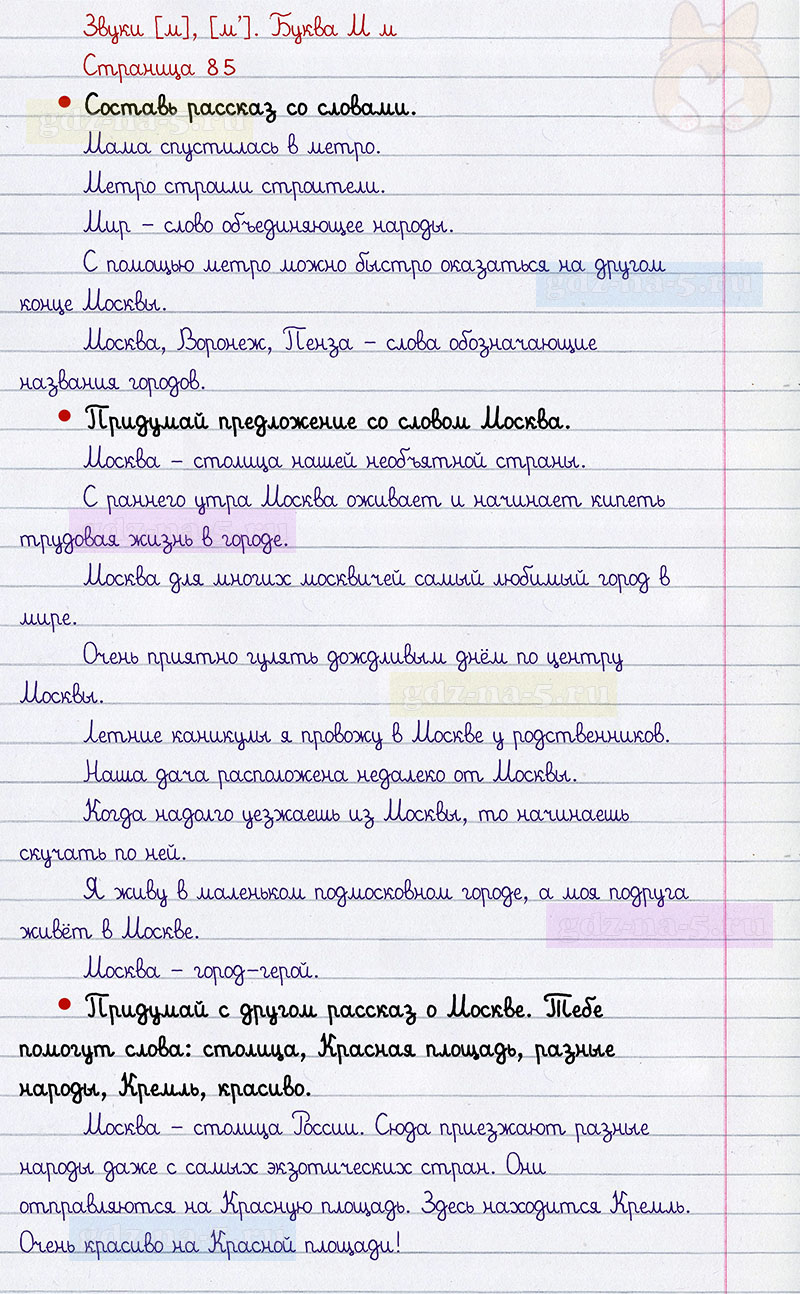 Звуки [м], [м’]. Буква М м
Страница 85
• Составь рассказ со словами.
gdz-na-5.ru
Мама спустилась в метро.
Метро строили строители.
Мир – слово объединяющее народы.
С помощью метро можно быстро оказаться на другом
gdz-na-5.ru
конце Москвы.
Москва, Воронеж, Пенза – слова обозначающие
названия городов.
• Придумай предложение со словом Москва.
Москва – столица нашей необъятной страны.
С раннего утра Москва оживает и начинает кипеть
gdz-na-5.ru
трудовая жизнь в городе.
Москва для многих москвичей самый любимый город в
мире.
Очень приятно гулять дождливым днём по центру
Москвы.
gdz-na-5.ru
Летние каникулы я провожу в Москве у родственников.
Наша дача расположена недалеко от Москвы.
Когда надолго уезжаешь из Москвы, то начинаешь
скучать по ней.
Я живу в маленьком подмосковном городе, а моя подруга
живёт в Москве.
gdz-na-5.ru
Москва – город-герой.
• Придумай с другом рассказ о Москве. Тебе
помогут слова: столица, Красная площадь, разные
народы, Кремль, красиво.
Москва – столица России. Сюда приезжают разные
народы даже с самых экзотических стран. Они
отправляются на Красную площадь. Здесь находится Кремль.
Очень красиво на Красной площади!
gdz-na-5.ru